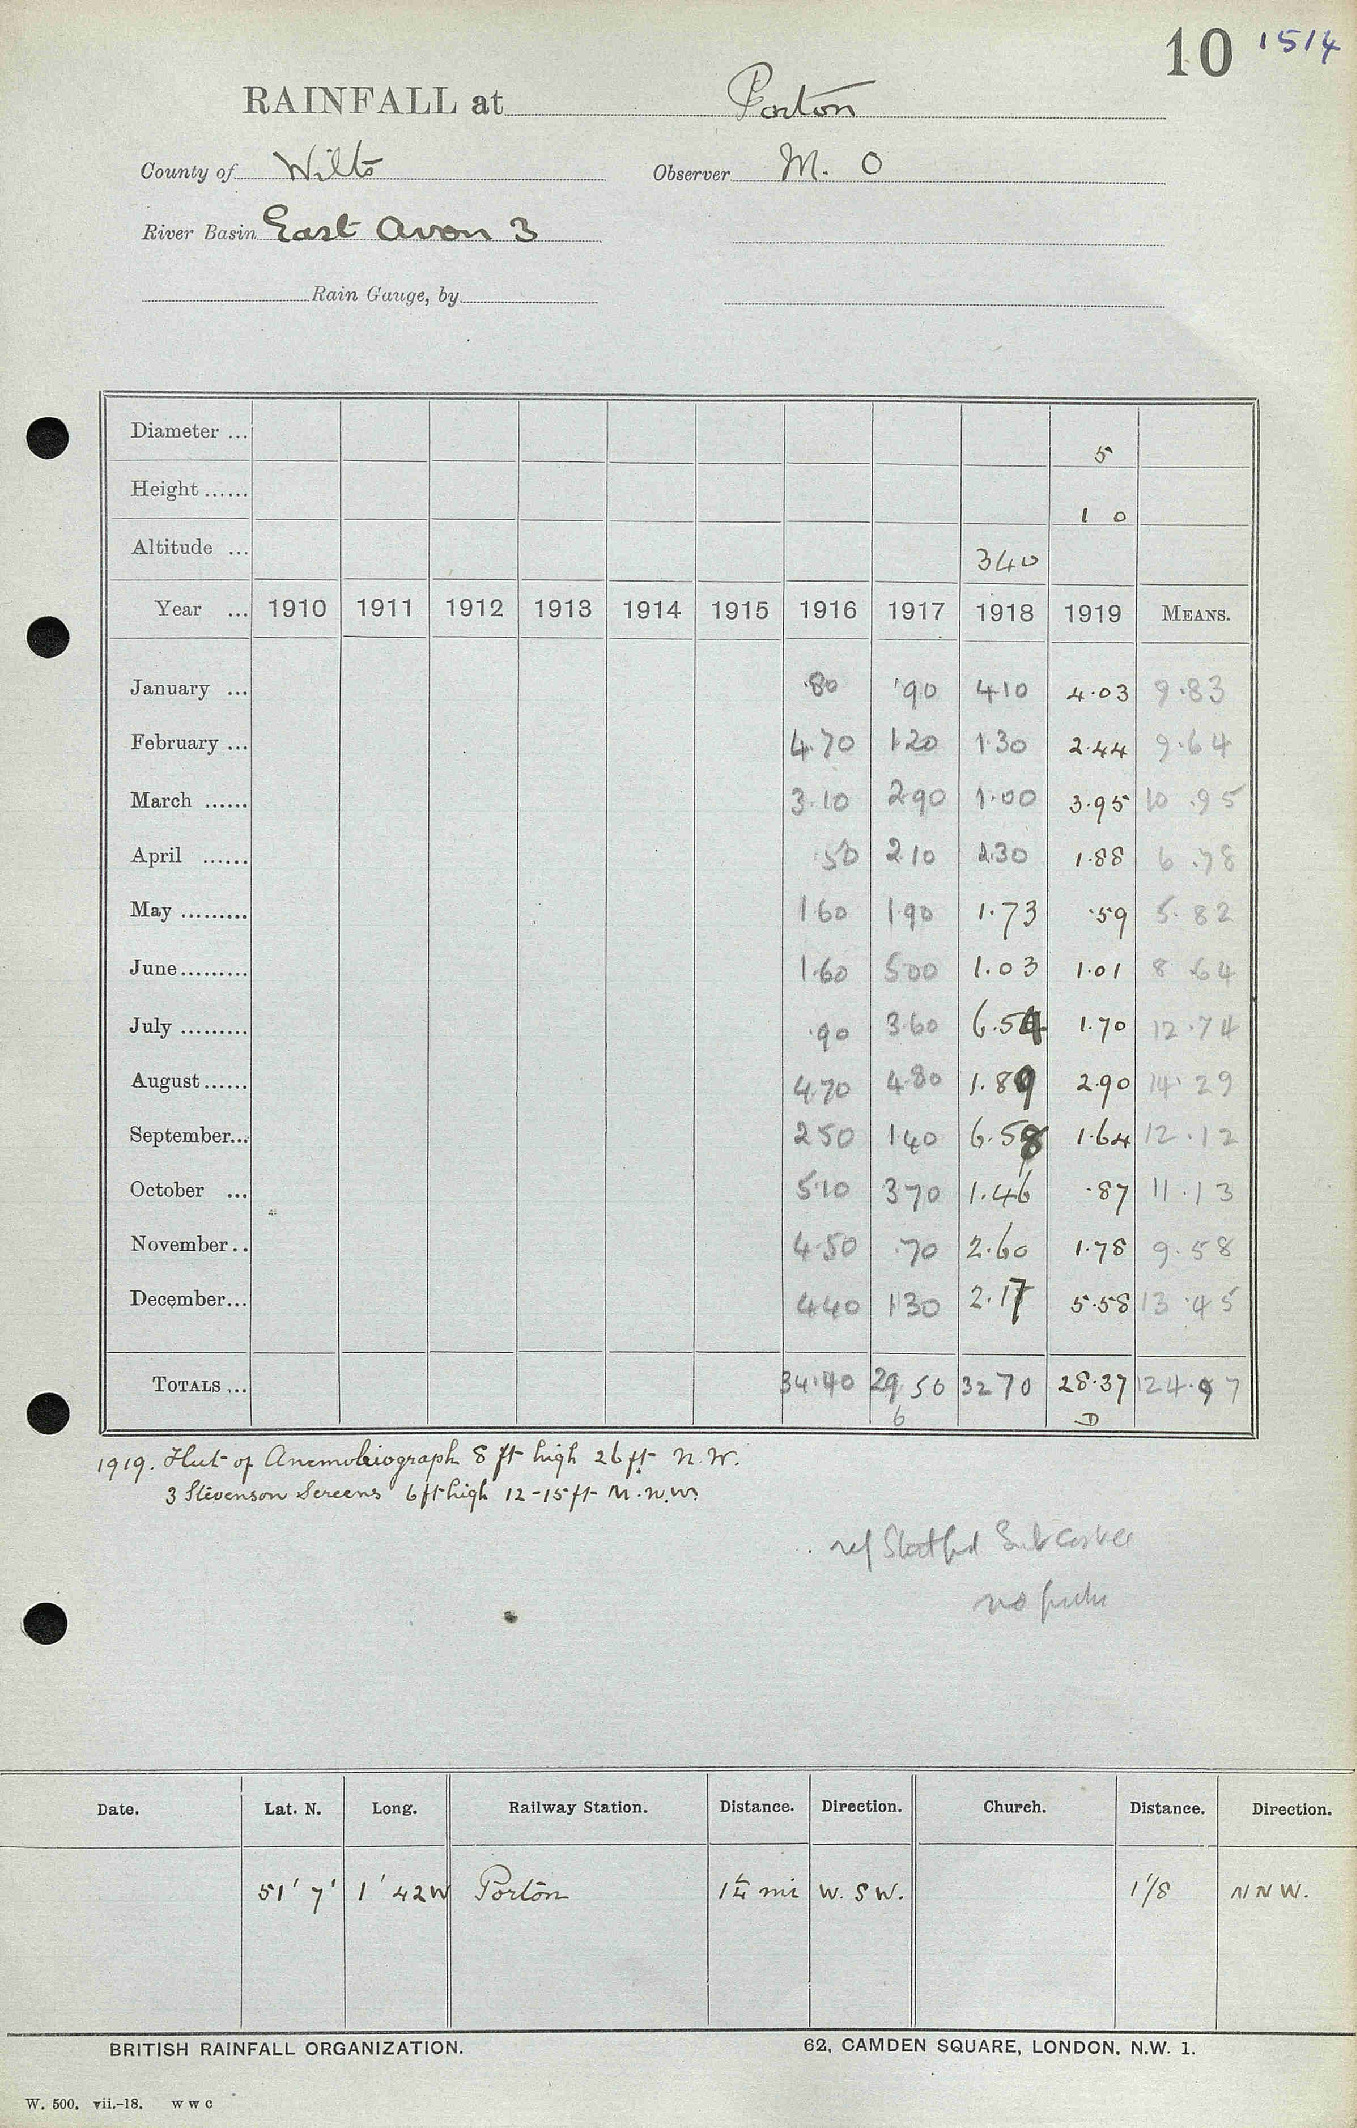 10 1514
RAINFALL at Porton
County of Wilts Observer M. O
River Basin East Avon 3
Rain Gauge, by
Diameter ... 5
Height ...... 1 0
Altitude ... 340
Year ... 1910 1911 1912 1913 1914 1915 1916 1917 1918 1919 MEANS.
January ... .80 .90 4.10 4.03 9.83
February ... 4.70 1.20 1.30 2.44 9.64
March ...... 3.10 2.90 1.00 3.95 10.95
April ...... .50 2.10 2.30 1.88 6.78
May ......... 1.60 1.90 1.73 .59 5.82
June......... 1.60 5.00 1.03 1.01 8.64
July ......... .90 3.60 6.54 1.70 12.74
August...... 4.70 4.80 1.89 2.90 14.29
September... 2.50 1.40 6.58 1.64 12.12
October ... 5.10 3.70 1.46 .87 11.13
November.. 4.50 .70 2.60 1.78 9.58
December... 4.40 1.30 2.17 5.58 13.45
TOTALS ... 34.40 29.50 32.70 28.37 124.97
6 D
1919. Hut of Anemobiograph 8 ft high 26 ft N.W.
3 Stevenson Screens 6 ft high 12-15 ft N.N.W.
ref
no
Date. Lat. N. Long. Railway Station. Distance. Direction. Church. Distance. Direction.
51' 7' 1' 42W Porton 1¼ mi W. SW. 1 1/8 NNW.
BRITISH RAINFALL ORGANIZATION. 62, CAMDEN SQUARE, LONDON, N.W. 1.
W. 500. vii.-18. W W C